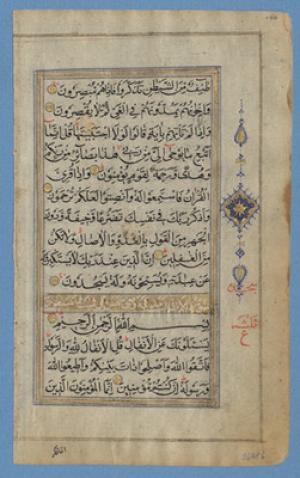 طٰئِفٌ مِنَ الشَّيْطٰنِ تَذَكَّرُوا فَاِذَا هُمْ مُبْصِرُونَ
وَاِخْوَانُهُمْ يَمُدُّونَهُمْ فِي الْغَيِّ ثُمَّ لَا يُقْصِرُونَ
وَاِذَا لَمْ تَأْتِهِمْ بِاٰيَةٍ قَالُوا لَوْلَا اجْتَبَيْتَهَا قُلْ اِنَّمَا
اَتَّبِعُ مَا يُوحٰى اِلَيَّ مِنْ رَبِّي هٰذَا بَصَائِرُ مِنْ رَبِّكُمْ
وَهُدًى وَرَحْمَةٌ لِقَوْمٍ يُؤْمِنُونَ وَاِذَا قُرِئَ
الْقُرْاٰنُ فَاسْتَمِعُوا لَهُ وَاَنْصِتُوا لَعَلَّكُمْ تُرْحَمُونَ
وَاذْكُرْ رَبَّكَ فِي نَفْسِكَ تَضَرُّعًا وَخِيفَةً وَدُونَ
الْجَهْرِ مِنَ الْقَوْلِ بِالْغُدُوِّ وَالْاٰصَالِ وَلَا تَكُنْ
مِنَ الْغٰفِلِينَ اِنَّ الَّذِينَ عِنْدَ رَبِّكَ لَا يَسْتَكْبِرُونَ
عَنْ عِبَادَتِهِ وَيُسَبِّحُونَهُ وَلَهُ يَسْجُدُونَ
بِسْمِ اللّٰهِ الرَّحْمٰنِ الرَّحِيمِ
يَسْئَلُونَكَ عَنِ الْاَنْفَالِ قُلِ الْاَنْفَالُ لِلّٰهِ وَالرَّسُولِ
فَاتَّقُوا اللّٰهَ وَاَصْلِحُوا ذَاتَ بَيْنِكُمْ وَاَطِيعُوا اللّٰهَ
وَرَسُولَهُ اِنْ كُنْتُمْ مُؤْمِنِينَ اِنَّمَا الْمُؤْمِنُونَ الَّذِينَ